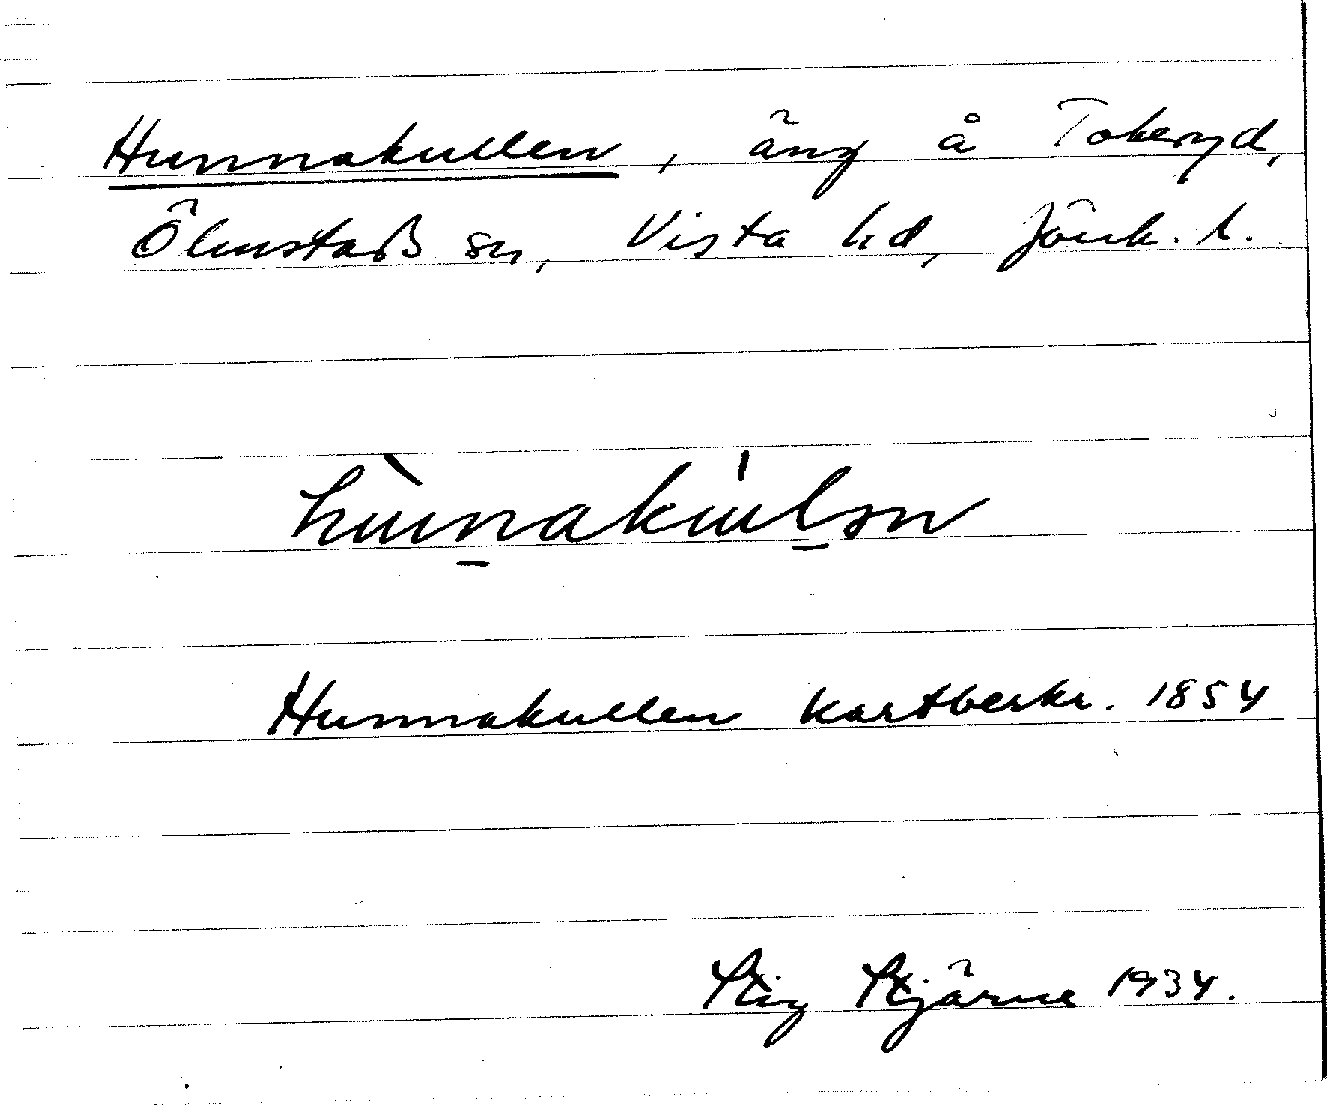 Hunnakullen, äng å Tokeryd,
Ölmstads sn, Vista hd, Jönk. l.
hùnakúlən
Hunnakullen kartbeskr. 1854
Stig Stjärne 1934.